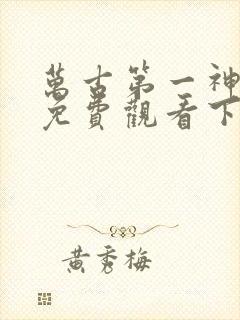 萬古第一神
免費觀看下
黃秀梅